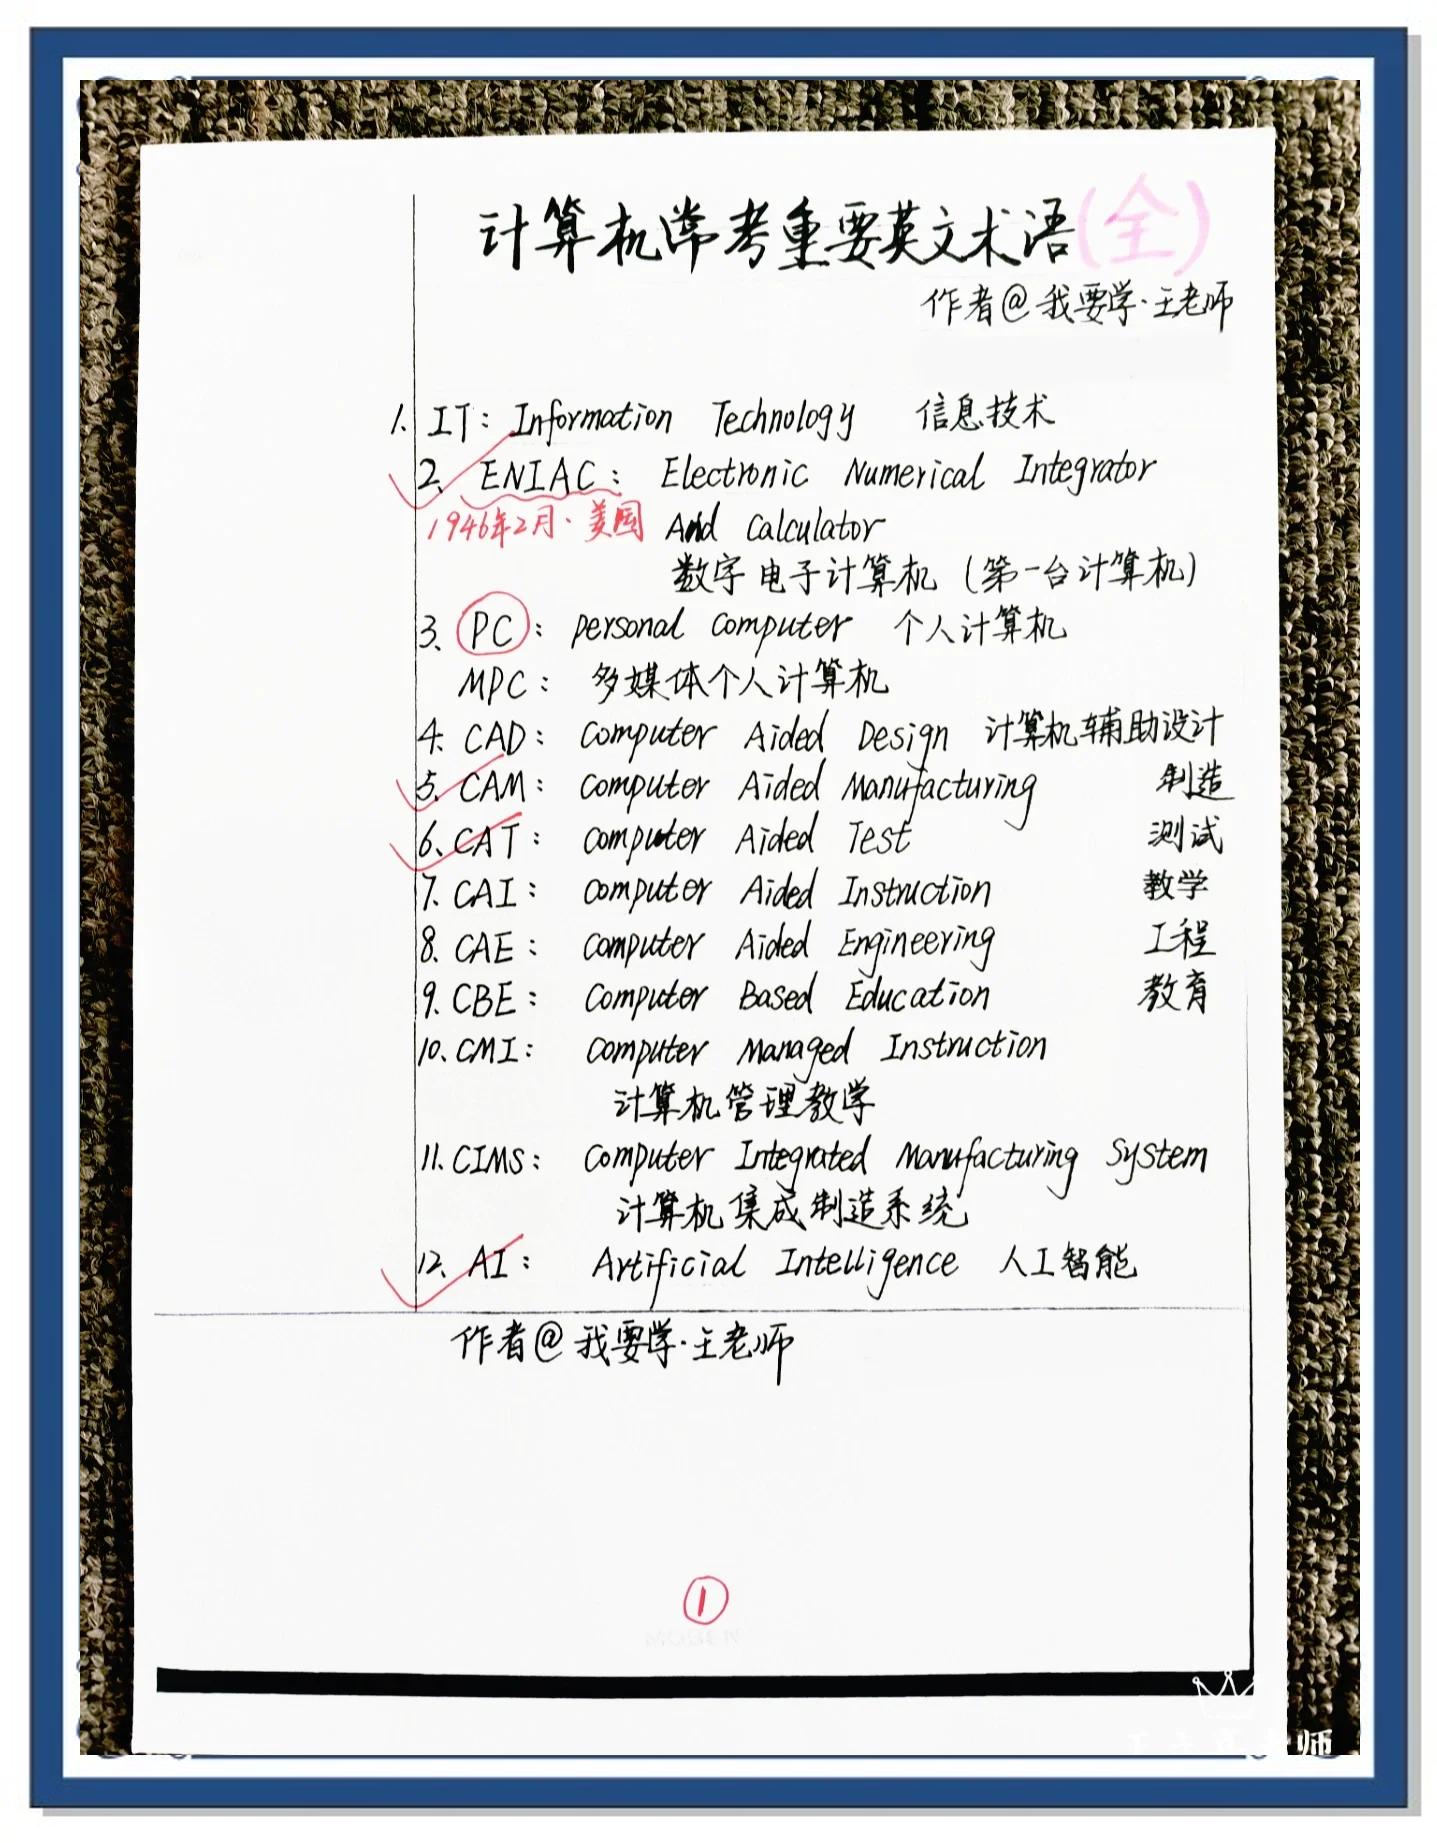 计算机常考重要英文术语(全)
作者@我要学·王老师
1. IT: Information Technology 信息技术
2. ENIAC: Electronic Numerical Integrator
1946年2月·美国 And Calculator
数字电子计算机 (第一台计算机)
3. PC: personal computer 个人计算机
MPC: 多媒体个人计算机
4. CAD: Computer Aided Design 计算机辅助设计
5. CAM: Computer Aided Manufacturing 制造
6. CAT: Computer Aided Test 测试
7. CAI: Computer Aided Instruction 教学
8. CAE: Computer Aided Engineering 工程
9. CBE: Computer Based Education 教育
10. CMI: Computer Managed Instruction
计算机管理教学
11. CIMS: Computer Integrated Manufacturing System
计算机集成制造系统
12. AI: Artificial Intelligence 人工智能
作者@我要学·王老师
1